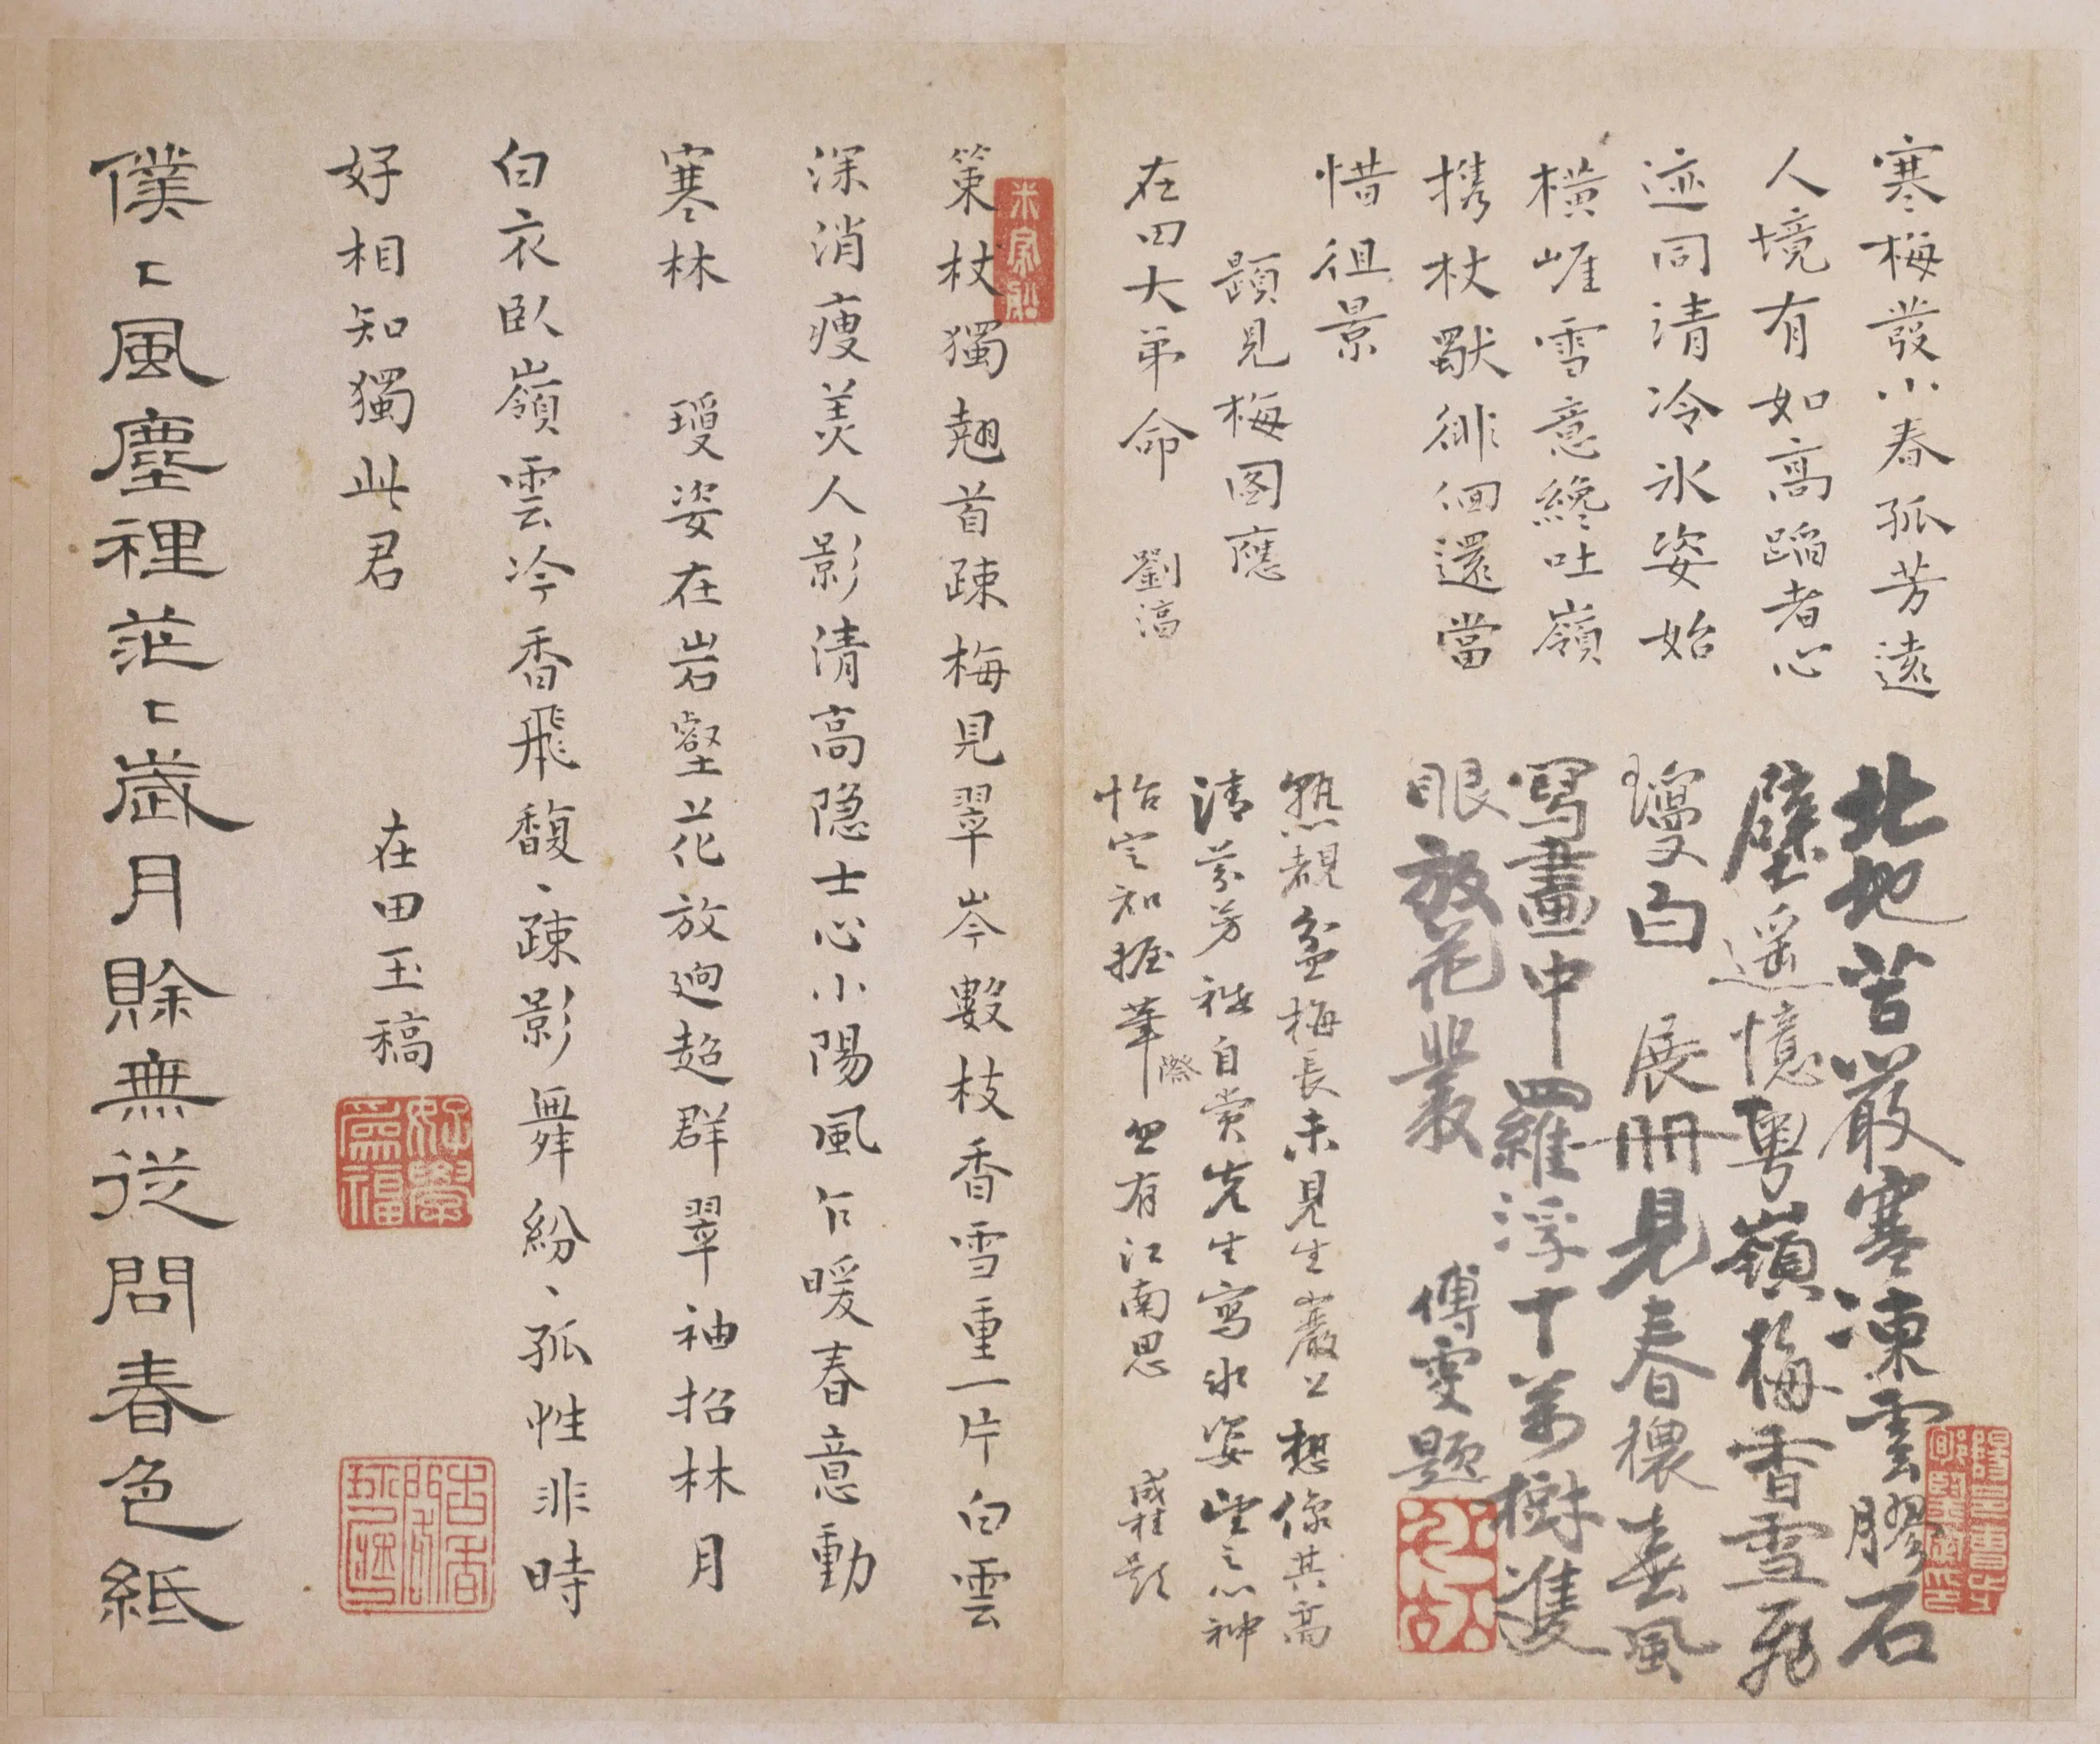 寒梅發小春孤芳遠
人境有如高蹈者心
迹同清冷氷姿始
橫崕雪意纔吐嶺
携杖獸徘徊還當
惜徂景
題見梅圖應
在田大弟命 劉漓
北地苦嚴寒凍雲膠石
壁遥憶粤嶺梅香雪飛
瓊白 展冊見春穠春風
寫畫中羅浮十萬樹隻
眼放花叢
傅雯題
熟覩盆梅長未見生巖上想像其高
清芬芳祗自賞先生寫氷姿望之心神
怡定知握筆際中有江南思
成桂題
策杖獨翹首疎梅見翠岑數枝香雪重一片白雲
深消瘦美人影清高隐士心小陽風乍暖春意動
寒林 瓊姿在岩壑花放逈超群翠袖招林月
白衣臥嶺雲冷香飛馥、疎影舞紛、孤性非時
好相知獨此君
在田玉稿
好學為福
僕〻風塵裡茫〻歲月賖無從問春色紙